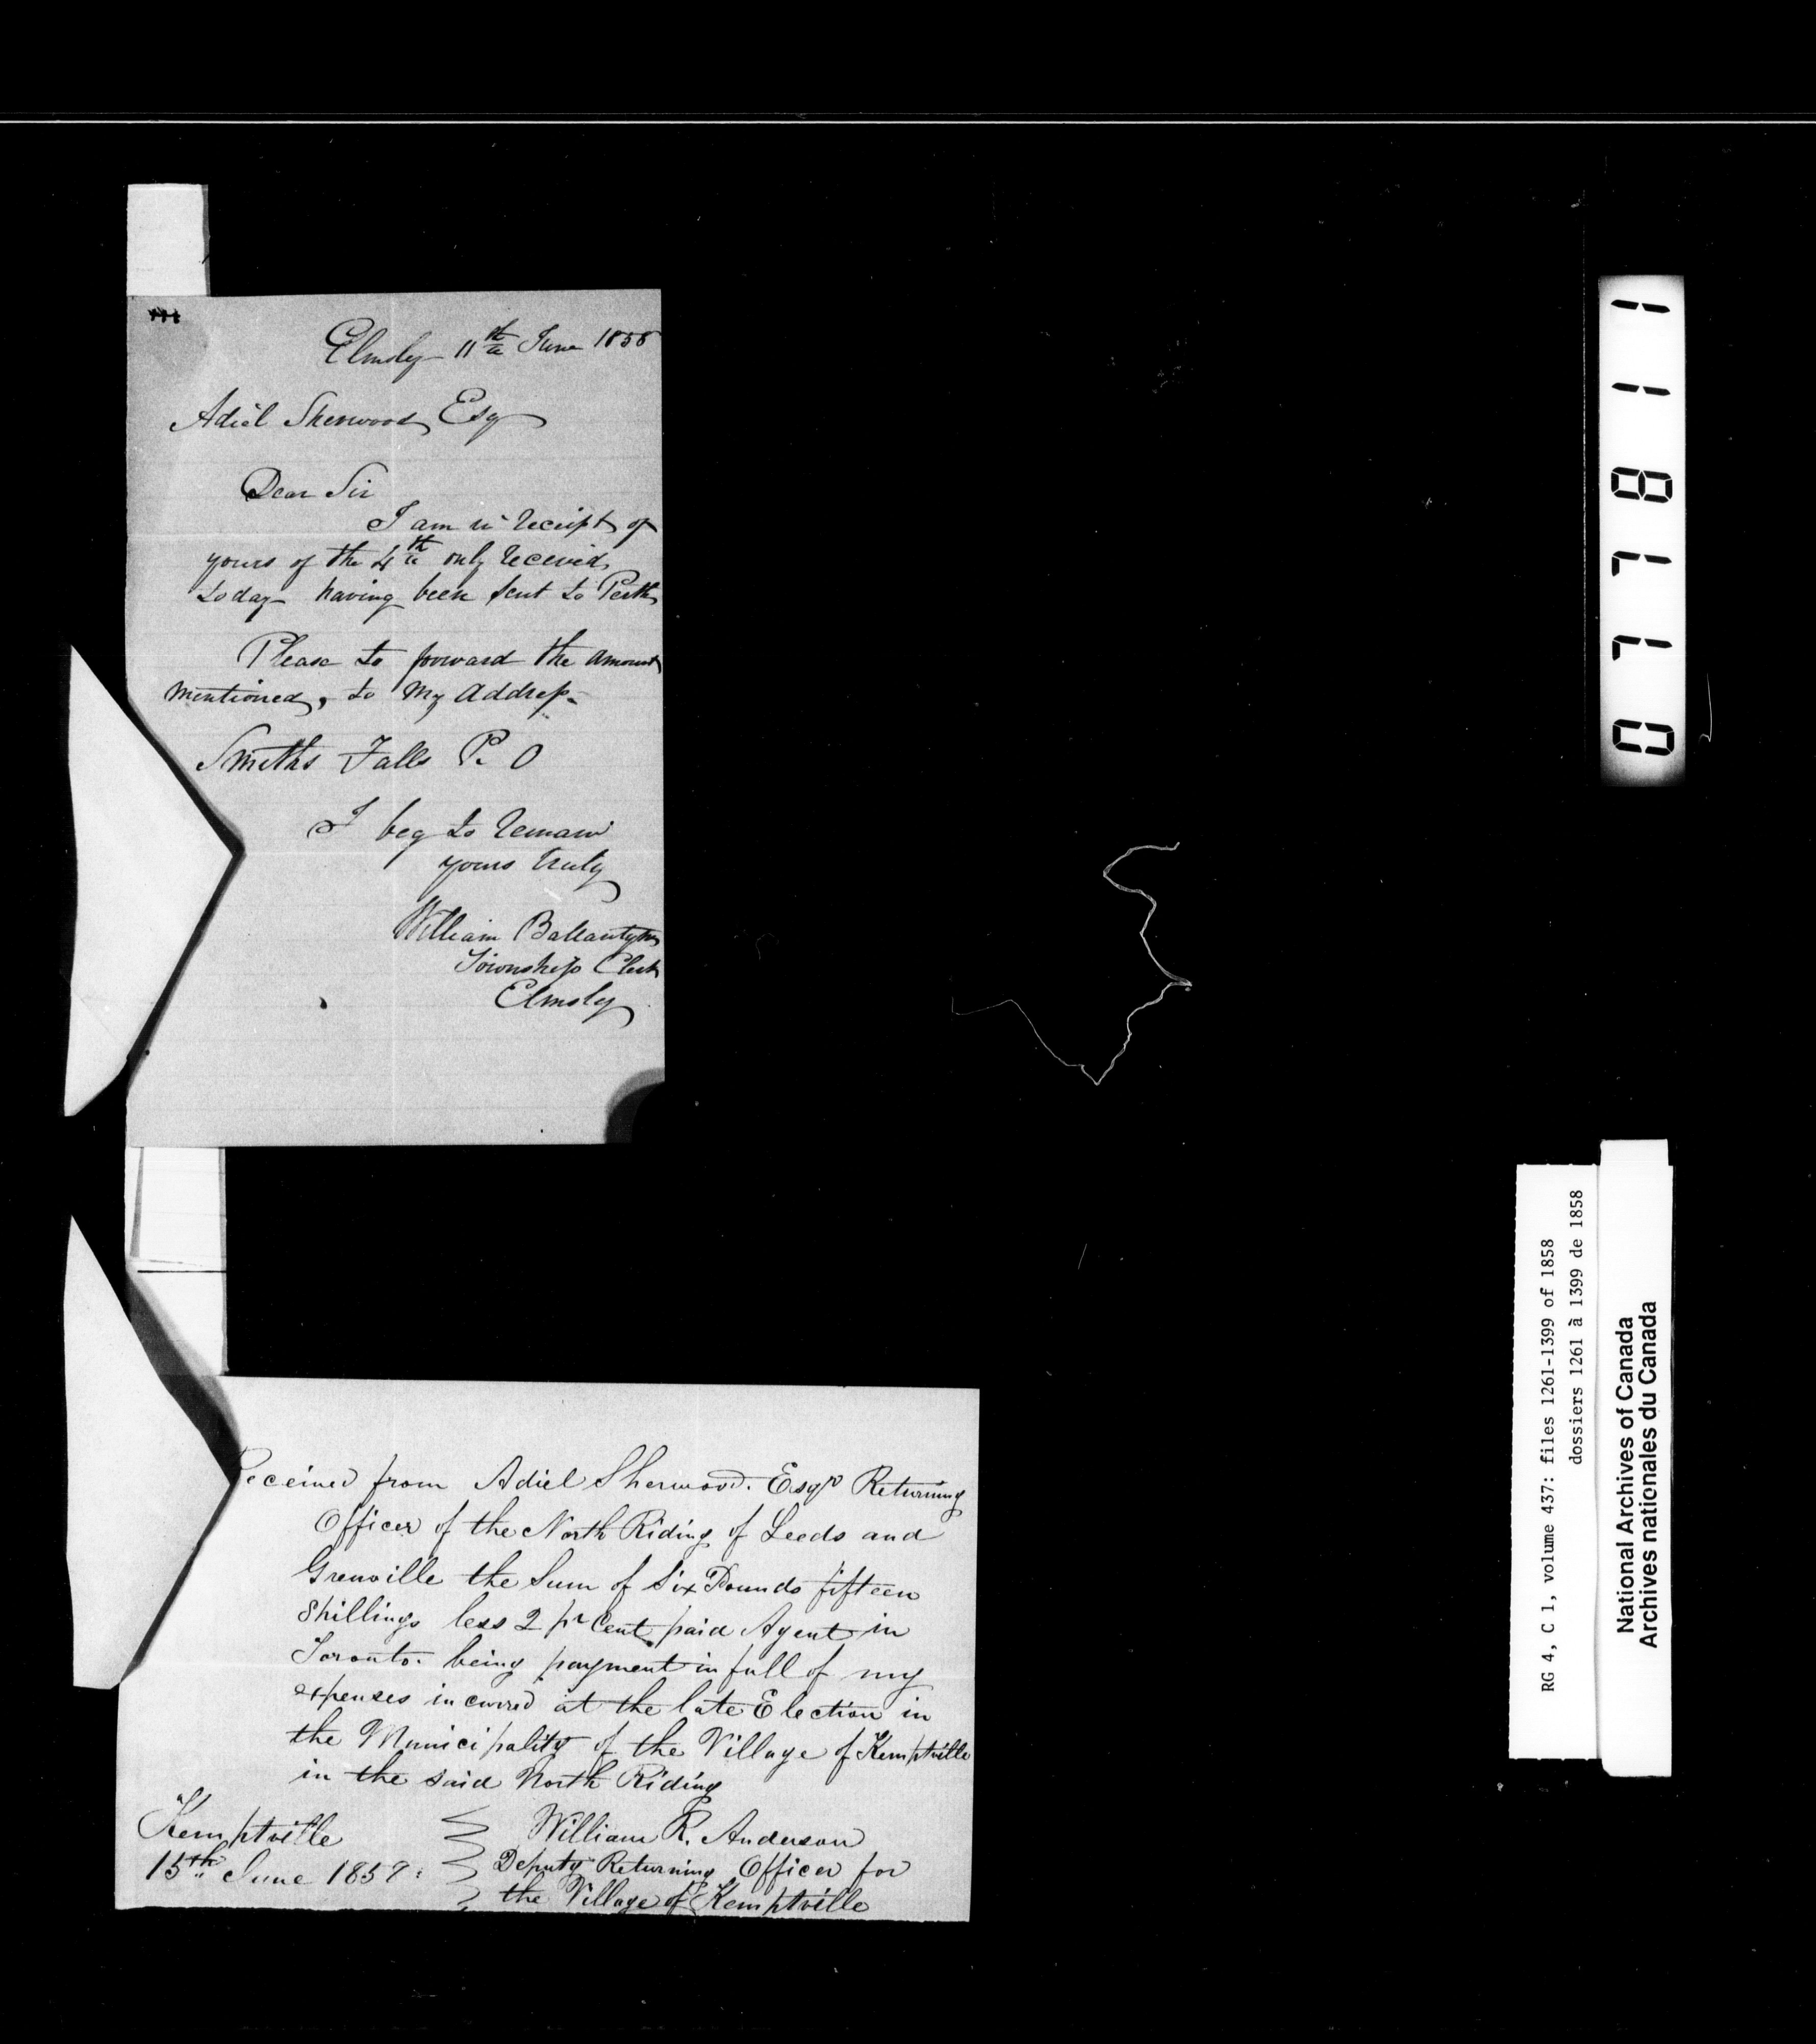 Elmsly 11th June 1858
Adiel Sherwood Esq
Dear Sir
I am in receipt of
yours of the 4th only received
today having been sent to Perth
Please to forward the amount
mentioned, to my address
Smiths Falls P. O
I beg to remain
yours truly
William Ballantyne
Township Clerk
Elmsly
Received from Adiel Sherwood. Esqr Returning
Officer of the North Riding of Leeds and
Grenville the Sum of Six Pounds fifteen
Shillings less 2 pr Cent paid Agent in
Toronto. being payment in full of my
expenses incurred at the late Election in
the Municipality of the Village of Kemptville
in the said North Riding
Kemptville
15th June 1859
William R. Anderson
Deputy Returning Officer for
the Village of Kemptville
077811
RG 4, C 1, volume 437: files 1261-1399 of 1858
dossiers 1261 à 1399 de 1858
National Archives of Canada
Archives nationales du Canada